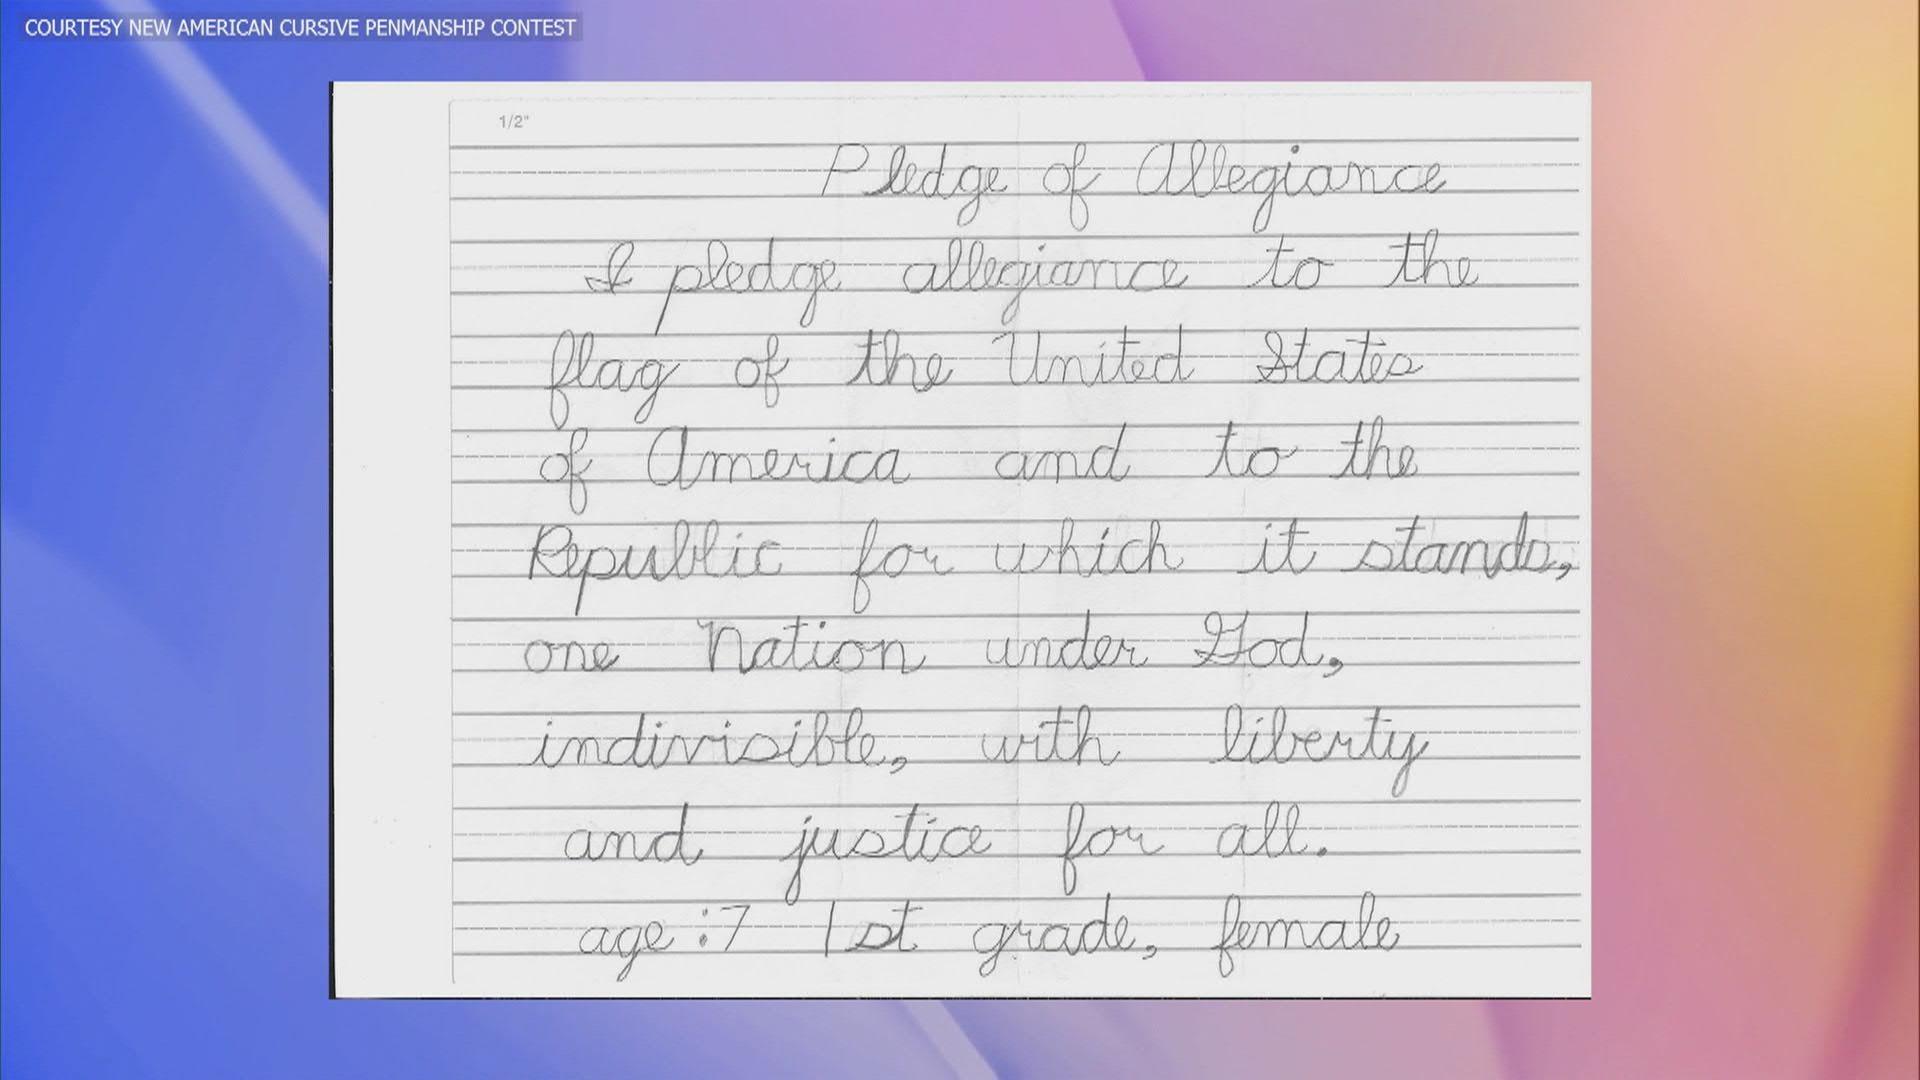 COURTESY NEW AMERICAN CURSIVE PENMANSHIP CONTEST
1/2"
Pledge of Allegiance
I pledge allegiance to the
flag of the United States
of America and to the
Republic for which it stands,
one Nation under God,
indivisible, with liberty
and justice for all.
age:7 1st grade, female